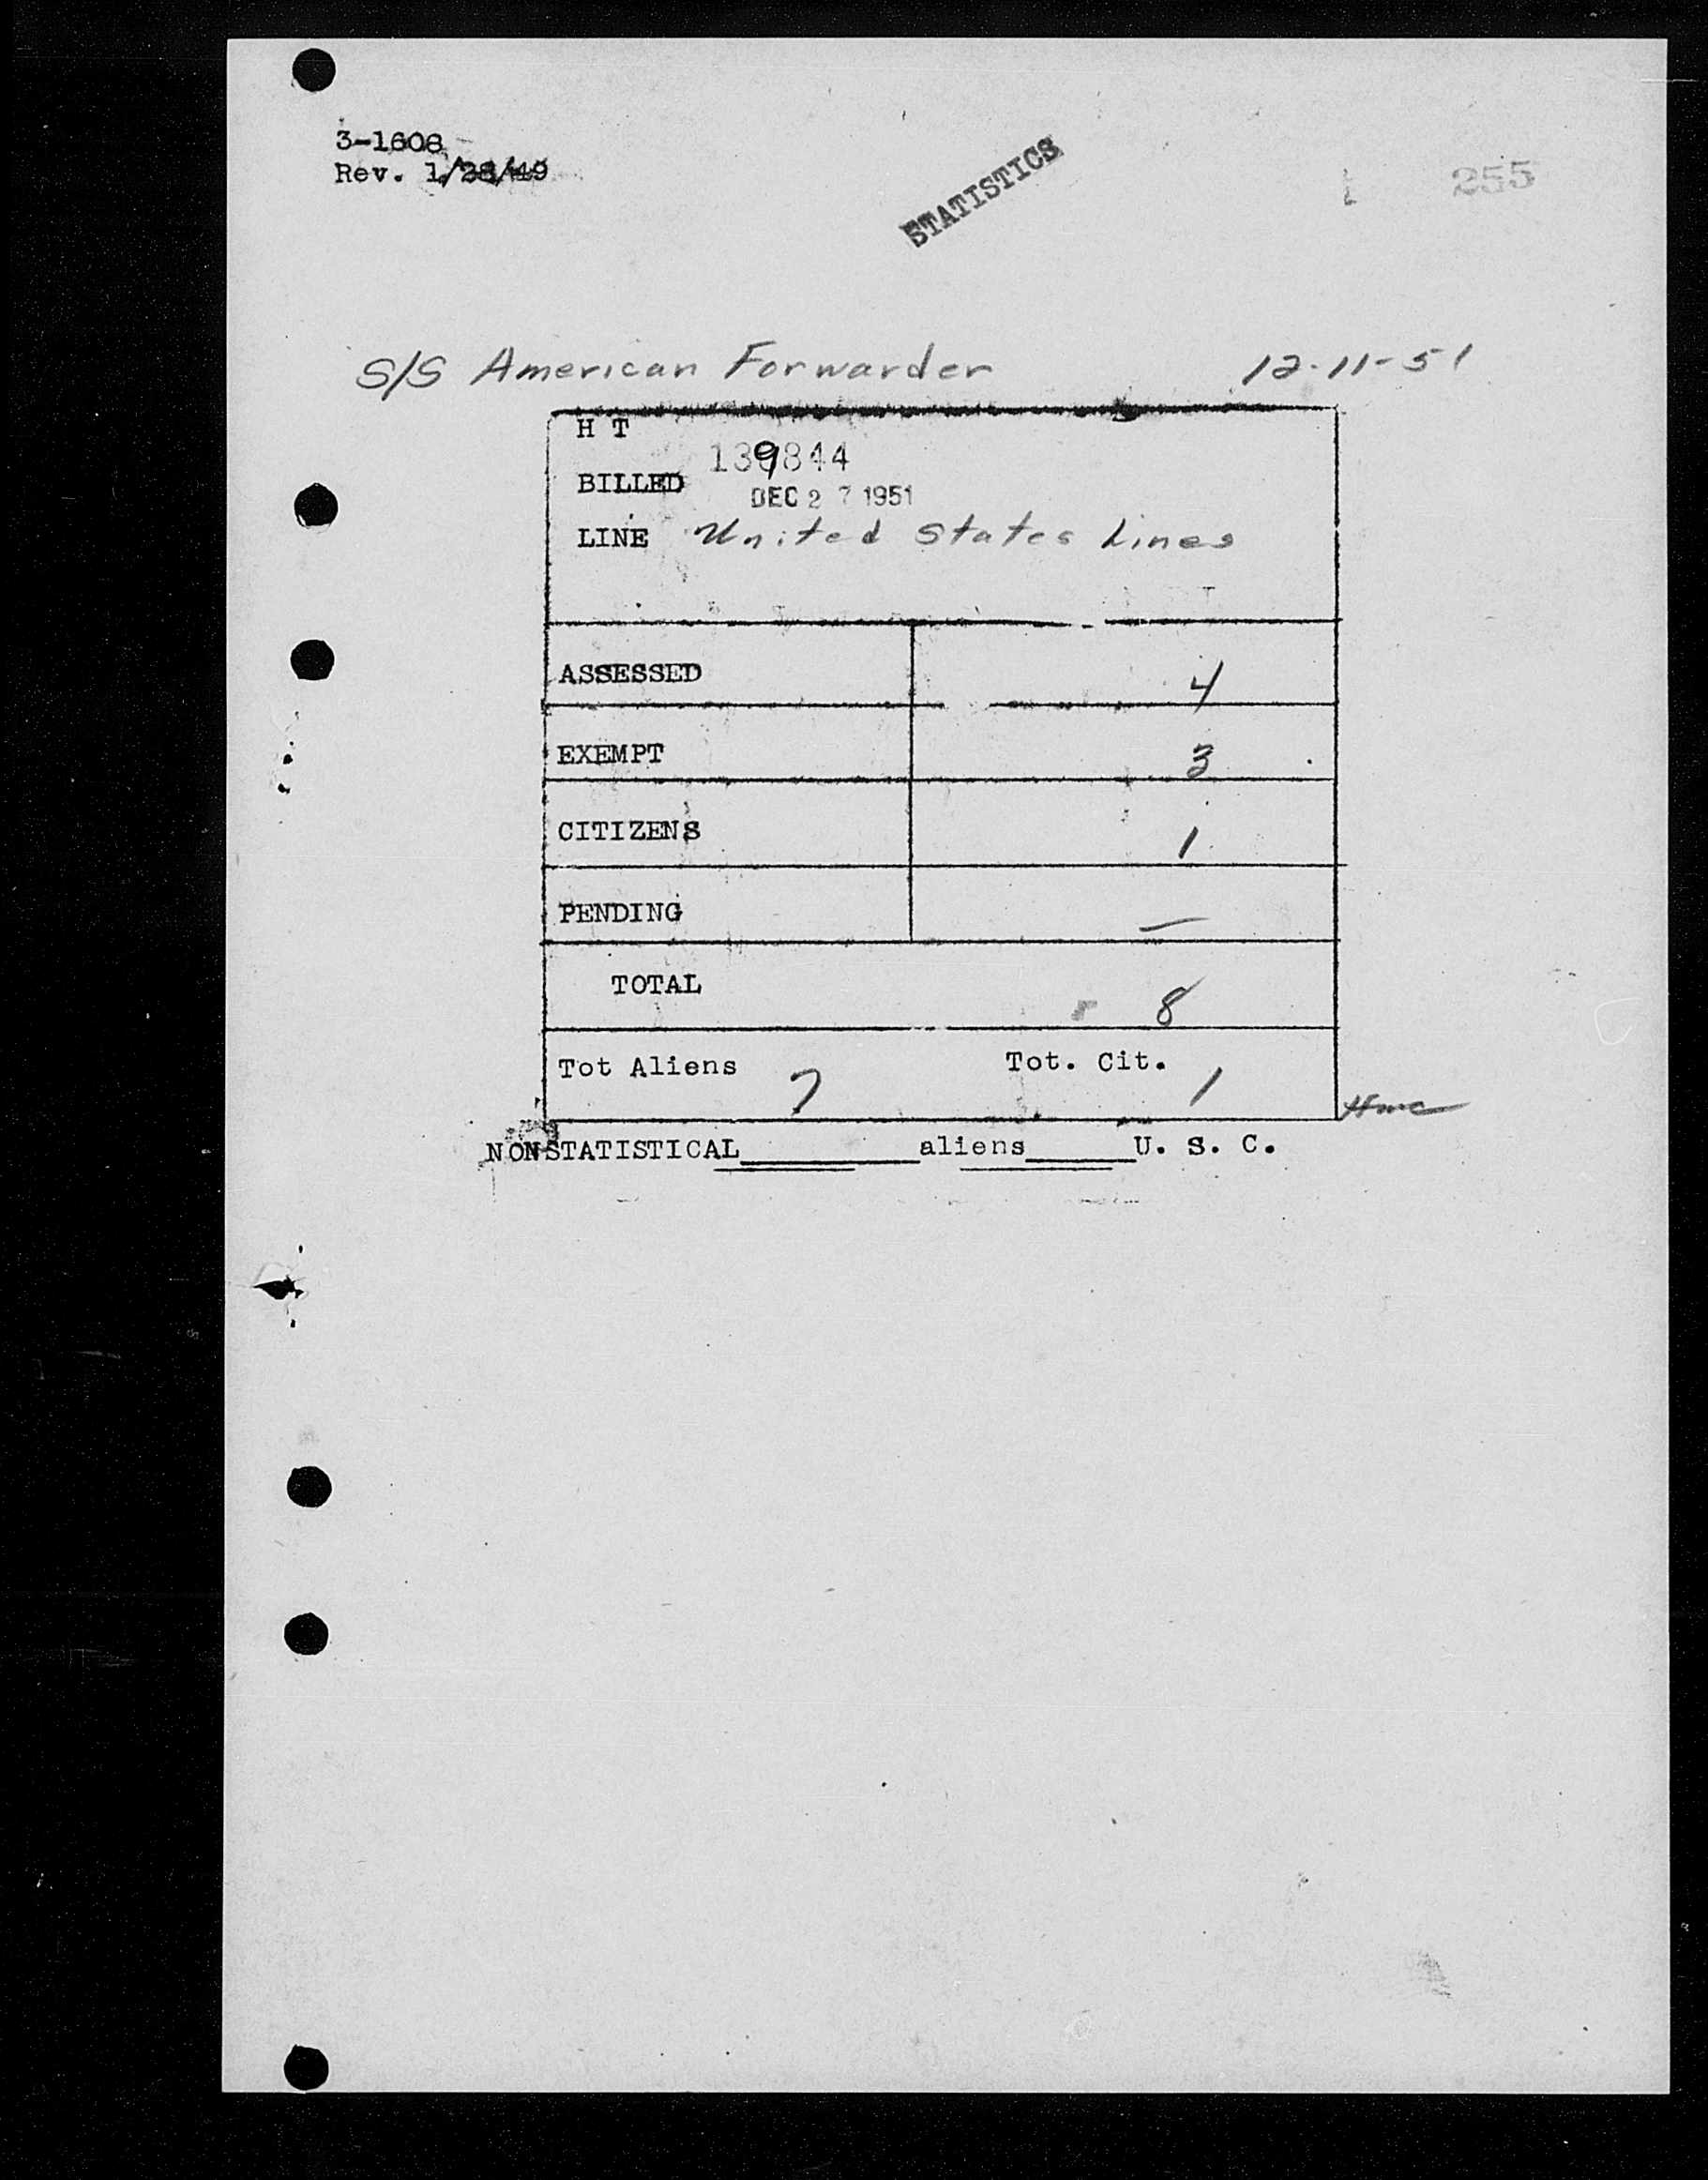 3-1608
Rev. 1/28/49
STATISTICS
255
S/S American Forwarder 12-11-51
H T
139844
BILLED
DEC 27 1951
LINE United States Lines
ASSESSED 4
EXEMPT 3
CITIZENS 1
PENDING —
TOTAL 8
Tot Aliens 7 Tot. Cit. 1
NONSTATISTICAL______aliens______U. S. C.